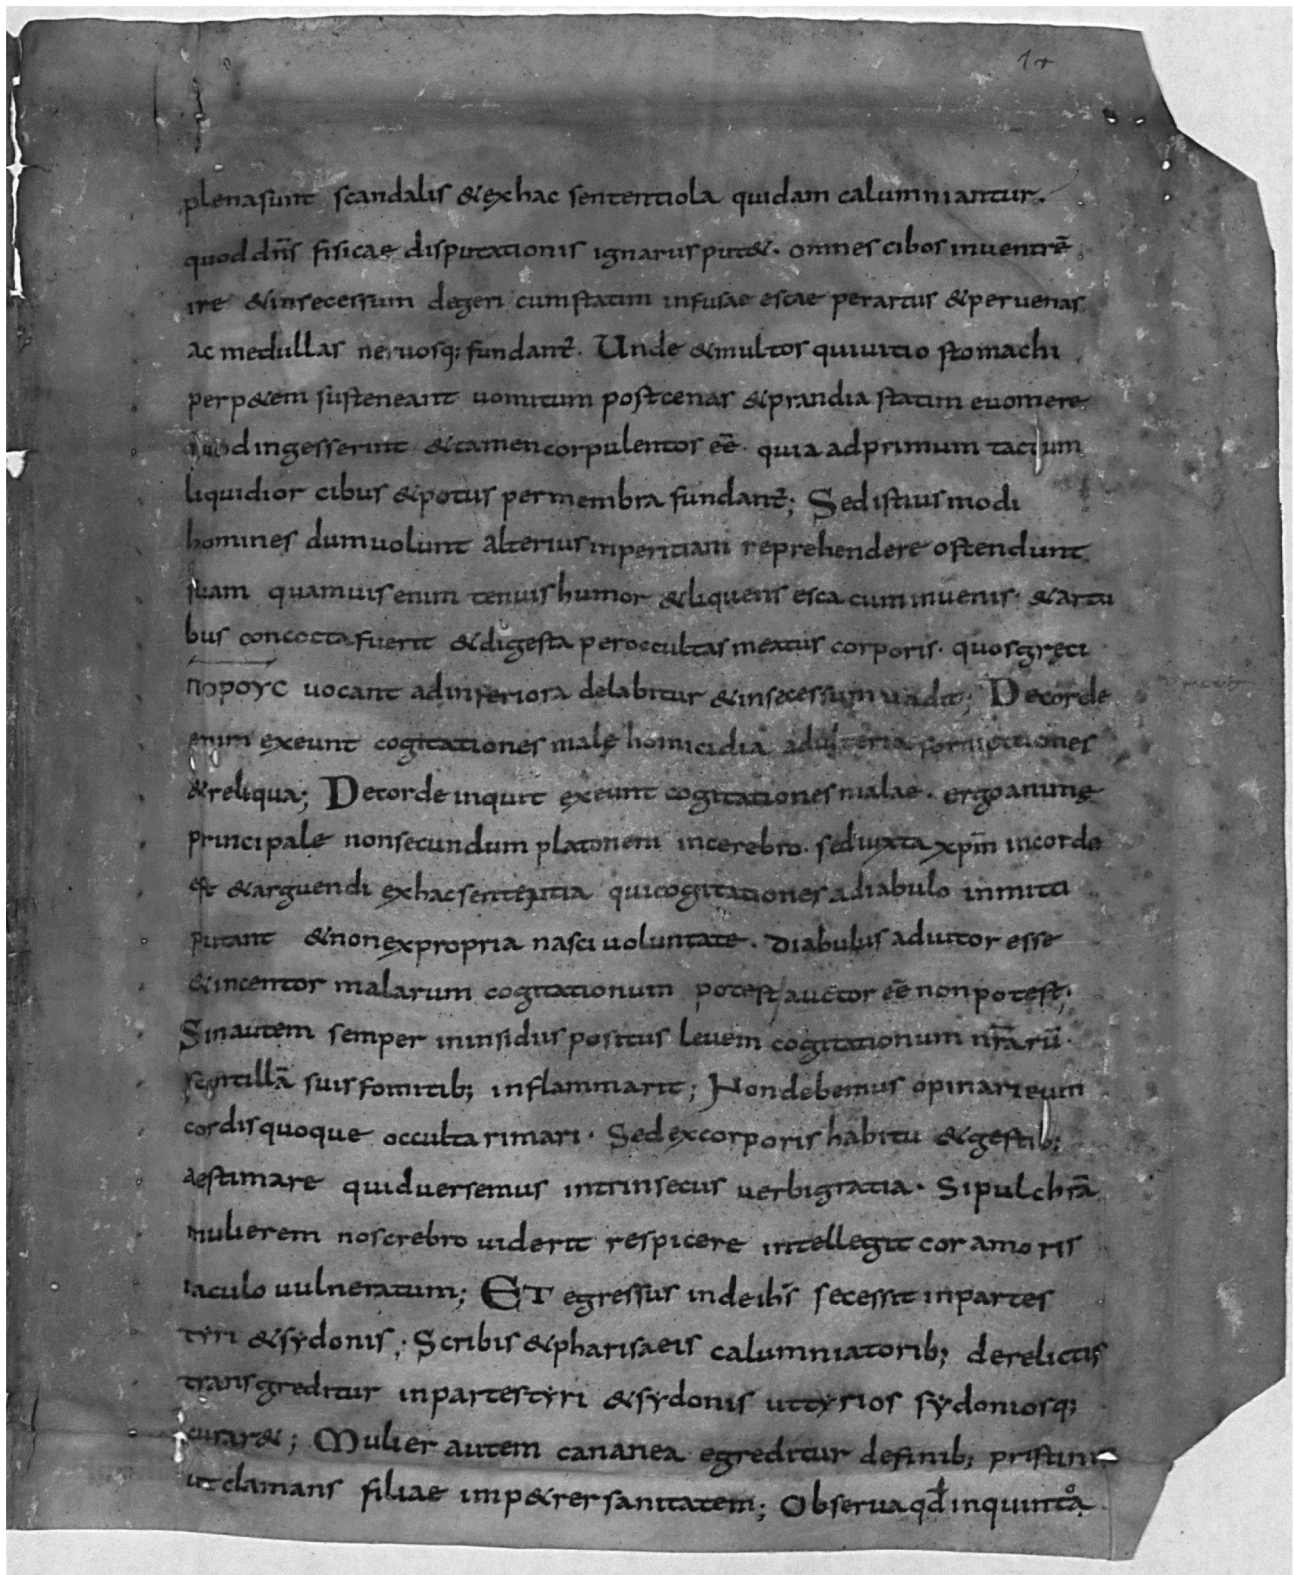 1r
plena sunt scandalis & ex hac sententiola quidam calumniantur.
quod dñs fisicae disputationis ignarus put&. omnes cibos in uentrē
ire & in secessum degeri cum statim infusae escae per artus & per uenas
ac medullas neruosq; fundant̃. Unde & multos qui uitio stomachi
perp&em susteneant uomitum post cenas & prandia statim euomere
quod ingesserint & tamen corpulentos eē. quia ad primum tactum
liquidior cibus & potus per membra fundant̃; Sed istius modi
homines dum uolunt alterius inperitiam reprehendere ostendunt
suam quamuis enim tenuis humor & liquens esca cum in uenis. & artu
bus concocta fuerit & digesta per occultas meatus corporis. quos gręci
ποροyc uocant ad inferiora delabitur & in secessum uadit; De corde
enim exeunt cogitationes malę homicidia adulteria fornicationes
& reliqua; De corde inquit exeunt cogitationes malae. ergo animę
principale non secundum platonem in cerebro. sed iuxta xpm̃ in corde
est & arguendi ex hac sententia qui cogitationes a diabulo inmitti
putant & non ex propria nasci uoluntate. Diabulus aduitor esse
& incentor malarum cogitationum potest / auctor eē non potest;
Sin autem semper in insidiis positus leuem cogitationum nr̃arū.
scintillā suis fomitib; inflammarit; Non debemus opinari eum
cordis quoque occulta rimari. Sed ex corporis habitu & gestib;
aestimare quid uersemus intrinsecus uerbi gratia. Si pulchrā
mulierem nos crebro uiderit respicere intellegit cor amoris
iaculo uulneratum; ET egressus inde ihs̄ secessit in partes
tyri & sydonis; Scribis & pharisaeis calumniatorib; derelictis
transgreditur in partes tyri & sydonis ut tyrios sydoniosq;
curar&; Mulier autem cananea egreditur de finib; pristinis
ut clamans filiae imp&rer sanitatem; Obserua qd̄ in quinto